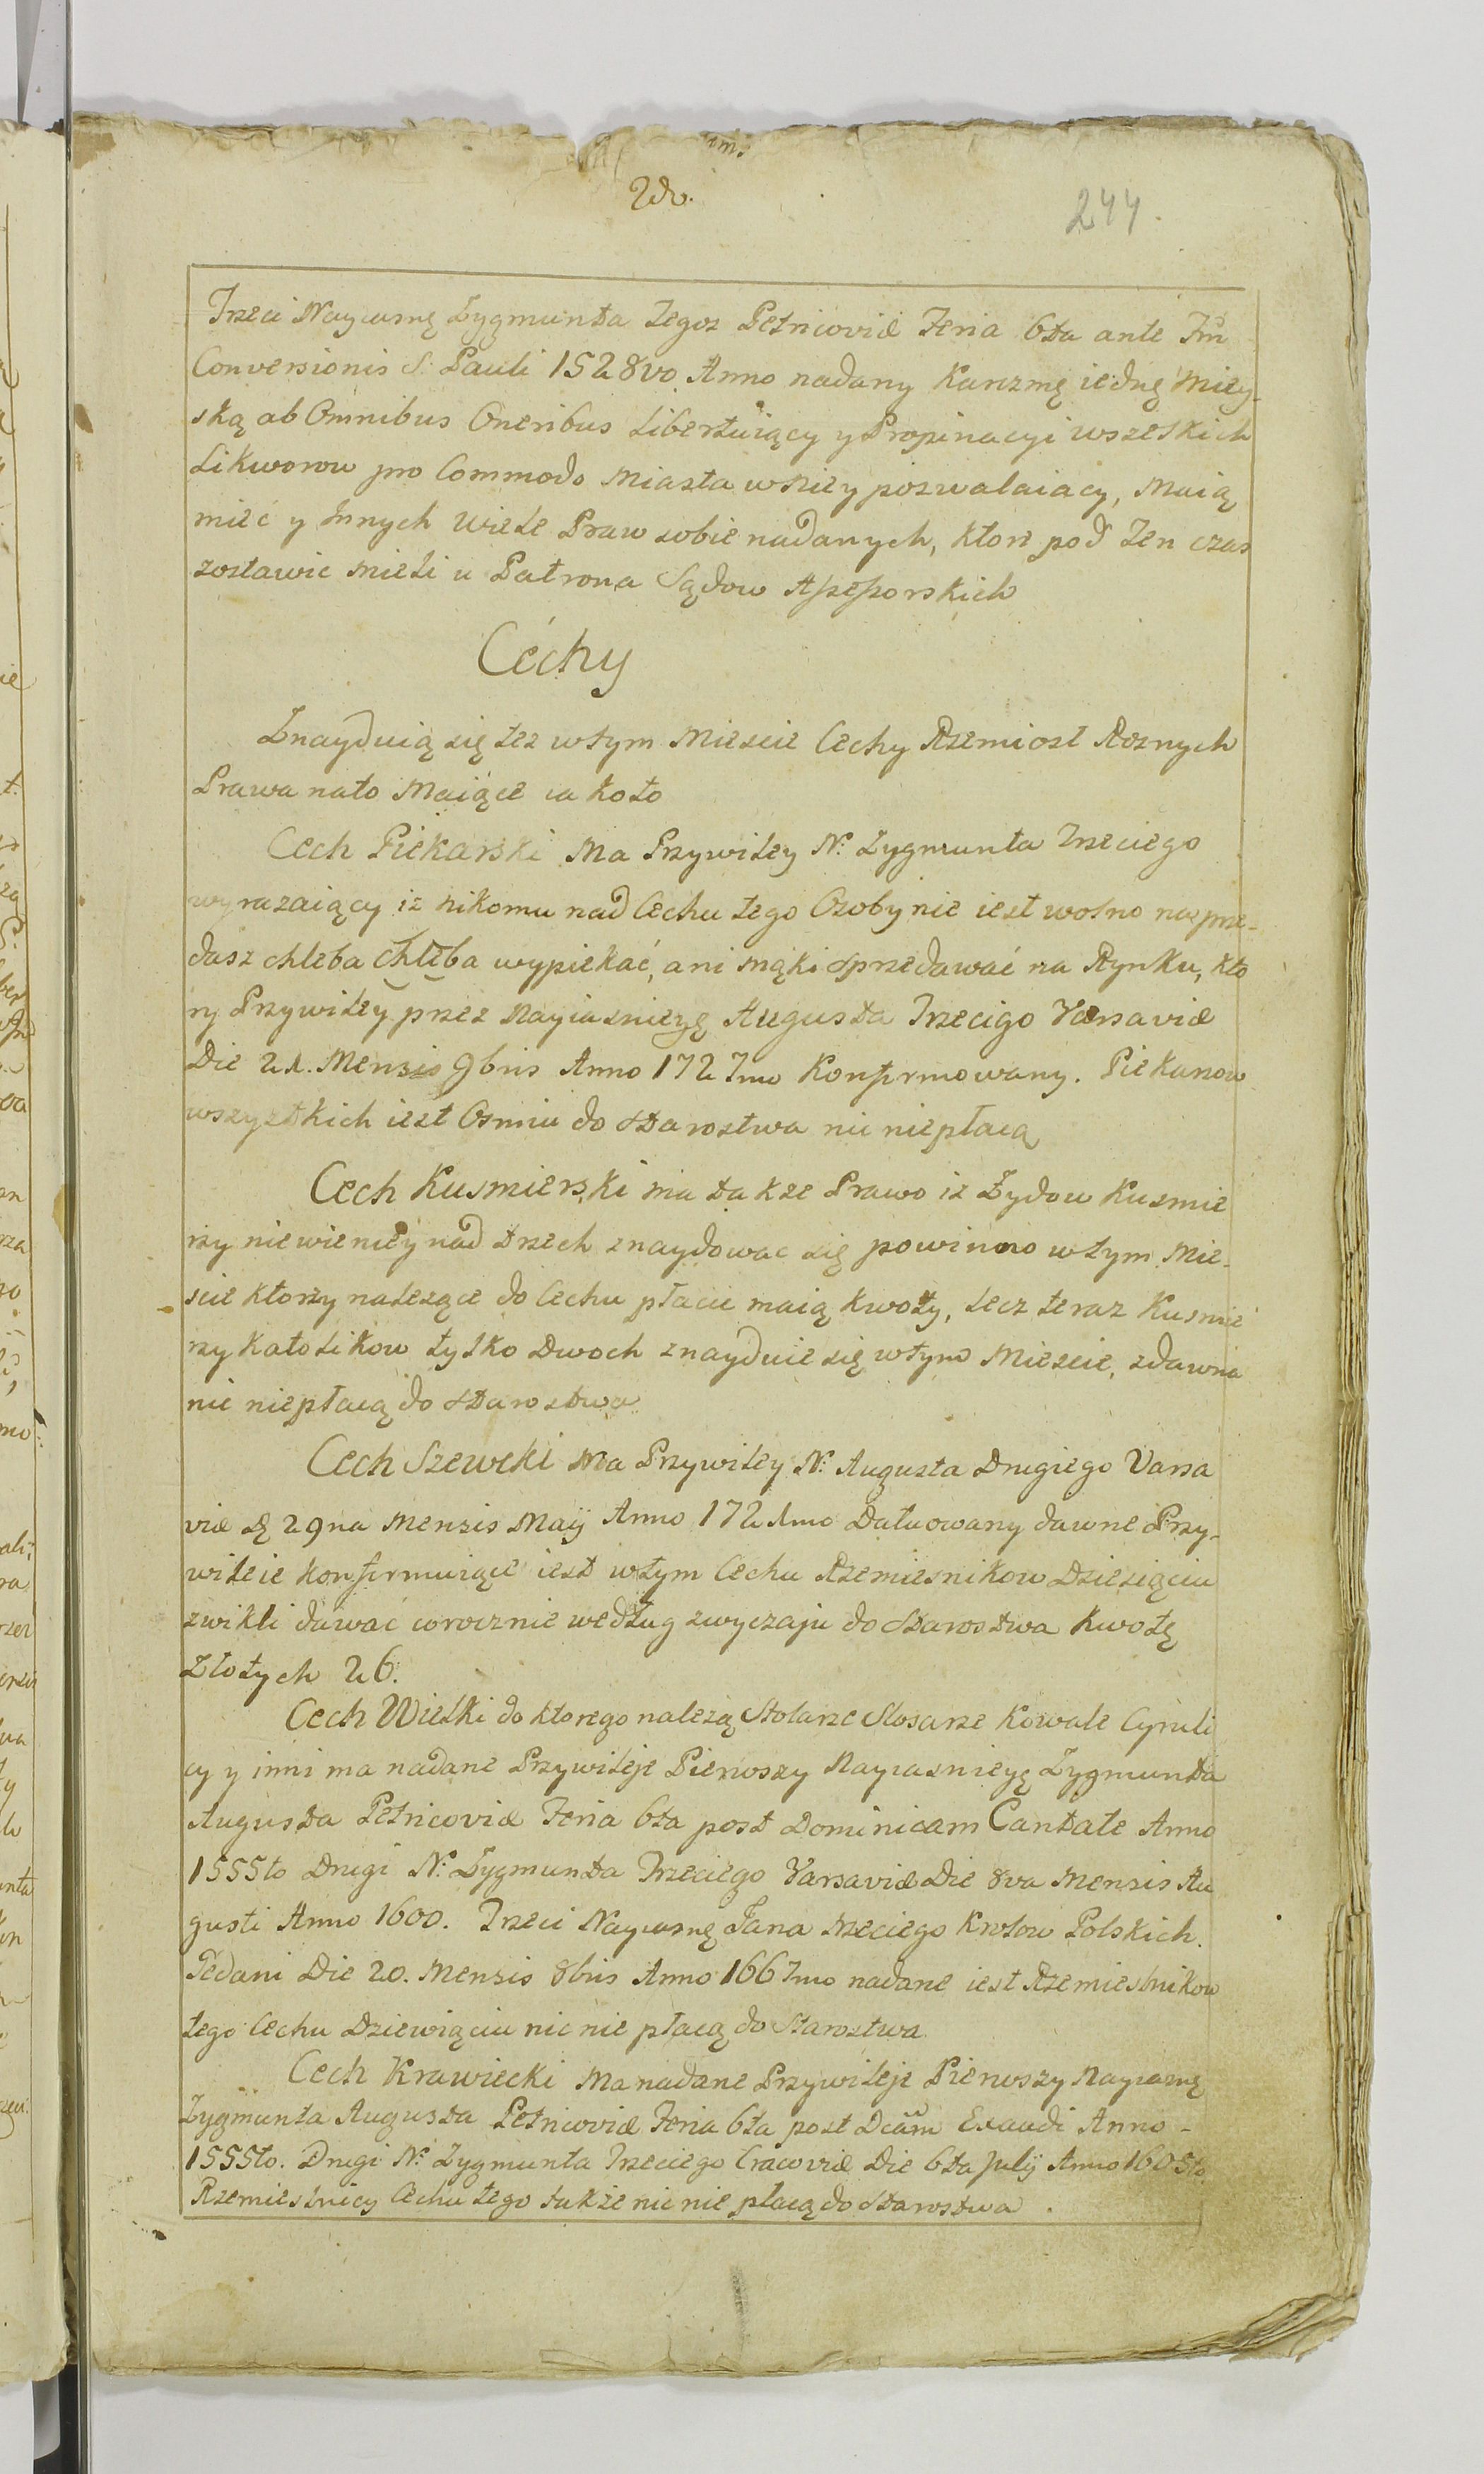 244.
Trzeci Nayiasnę Zygmunta tegoz Petricoviæ Feria 6ta ante Fm
Conversionis S. Pauli 1528vo Anno nadany Karzmę iednę Miey-
ską ab Omnibus Oneribus Libertuiący y Propinacyi wszelkich
Likworow pro Commodo Miasta w niey pozwalaiacy, Maią
mieć y Innych wiele Praw sobie nadanych, ktore pod ten czas
zostawic mieli u Patrona Sądow Assessorskich
Cechy
Znayduią się tez w tym Miescie Cechy Rzemiosł Roznych
Prawa na to Maiące iako to
Cech Piekarski Ma Przywiley N: Zygmunta Trzeciego
wyrazaiący iz nikomu nad Cechu tego Osoby nie iest wolno na prze-
dasz chleba chleba wypiekać, ani mąki sprzedawać na Rynku, kto
ry Przywiley przez Nayiasnieyę Augusta Trzecigo Varsaviæ
Die 21. Mensis 9bris Anno 1727mo Konfirmowany. Piekarzow
wszystkich iest Osmiu do Starostwa nic niepłacą
Cech Kusmierski ma takze Prawo iz Zydow Kusmie
rzy niewiencÿ nad trzech znaydowac się powinno w tym Mie-
scie ktorzy nalezące do Cechu płacic maią kwoty, lecz teraz Kusmie
rzy Katolikow tylko Dwoch znayduie się w tym Miescie, zdawna
nic niepłacą do Starostwa
Cech Szewcki Ma Przywiley N: Augusta Drugiego Varsa
viæ D 29na Mensis Maij Anno 1721mo Datuowany dawne Przy-
wileie konfirmuiące iest w tym Cechu Rzemiesnikow Dziesięciu
zwikli dawać corocznie według zwyczaju do Starostwa Kwotę
Złotych 26.
Cech Wielki do ktorego nalezą Stolarze Slosarze Kowale Cyruli
cy y inni ma nadane Przywileje Pierwszy Nayiasnieyę Zygmunta
Augusta Petricoviæ Feria 6ta post Dominicam Cantate Anno
1555to Drugi N: Zygmunta Trzeciego Varsaviæ Die 8va Mensis Au
gusti Anno 1600. Trzeci Nayiasnę Jana Trzeciego Krolow Polskich.
Gedani Die 20. Mensis 8bris Anno 1667mo nadane iest Rzemieslnikow
tego Cechu Dziewiąciu nic nie płacą do Starostwa
Cech Krawiecki Ma nadane Przywileje Pierwszy Nayiasnę
Zygmunta Augusta Petricoviæ Feria 6ta post Dcam Exaudi Anno -
1555to. Drugi N: Zygmunta Trzeciego Cracoviæ Die 6ta Julij Anno 1605to
Rzemieslnicy Cechu tego także nic nie płacą do Starostwa.